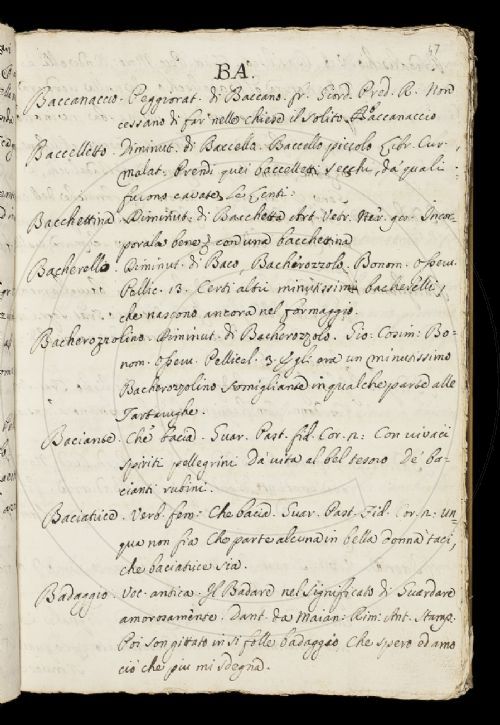 67
BA.
Baccanaccio. Peggiorat. di Baccano. fr. Giord. Pred. R. Non
cessano di far nelle chiese il solito Baccanaccio
Baccelletto. Diminut. di Baccello. Baccello piccolo Libr. Cur.
malat. Prendi quei baccelletti secchi, da' quali
furono cavate le Lenti.
Bacchettina. Diminut. di Bacchetta Art. Vetr. Ner. Incor-
poralo bene con una bacchettina
Bacherello. Diminut. di Baco, Bacherozzolo. Bonom. Osserv.
Pellic. 13. Certi altri minutissimi bacherelli,
che nascono ancora nel formaggio.
Bacherozzolino. Diminut. di Bacherozzolo. Gio: Cosim: Bo-
nom. Osserv. Pellicel. 3. ora un minutissimo
Bacherozzolino somigliante in qualche parte alle
Tartarughe.
Baciante. Che bacia. Guar. Past. fid. Cor. n: Con vivaci
spiriti pellegrini Dà vita al bel tesoro De' ba-
cianti rubini.
Baciatrice. Verb. fem: Che bacia. Guar. Past. Fid. Cor. n: un-
qua non fia Che parte alcuna in bella donna baci,
che baciatrice sia.
Badaggio. Voc. antica. Il Badare nel significato di Guardare
amorosamente. Dant. da Maian: Rim: Ant. Stamp.
Poi son gittato in sì folle badaggio, Che spero ed amo
ciò che più mi sdegna.